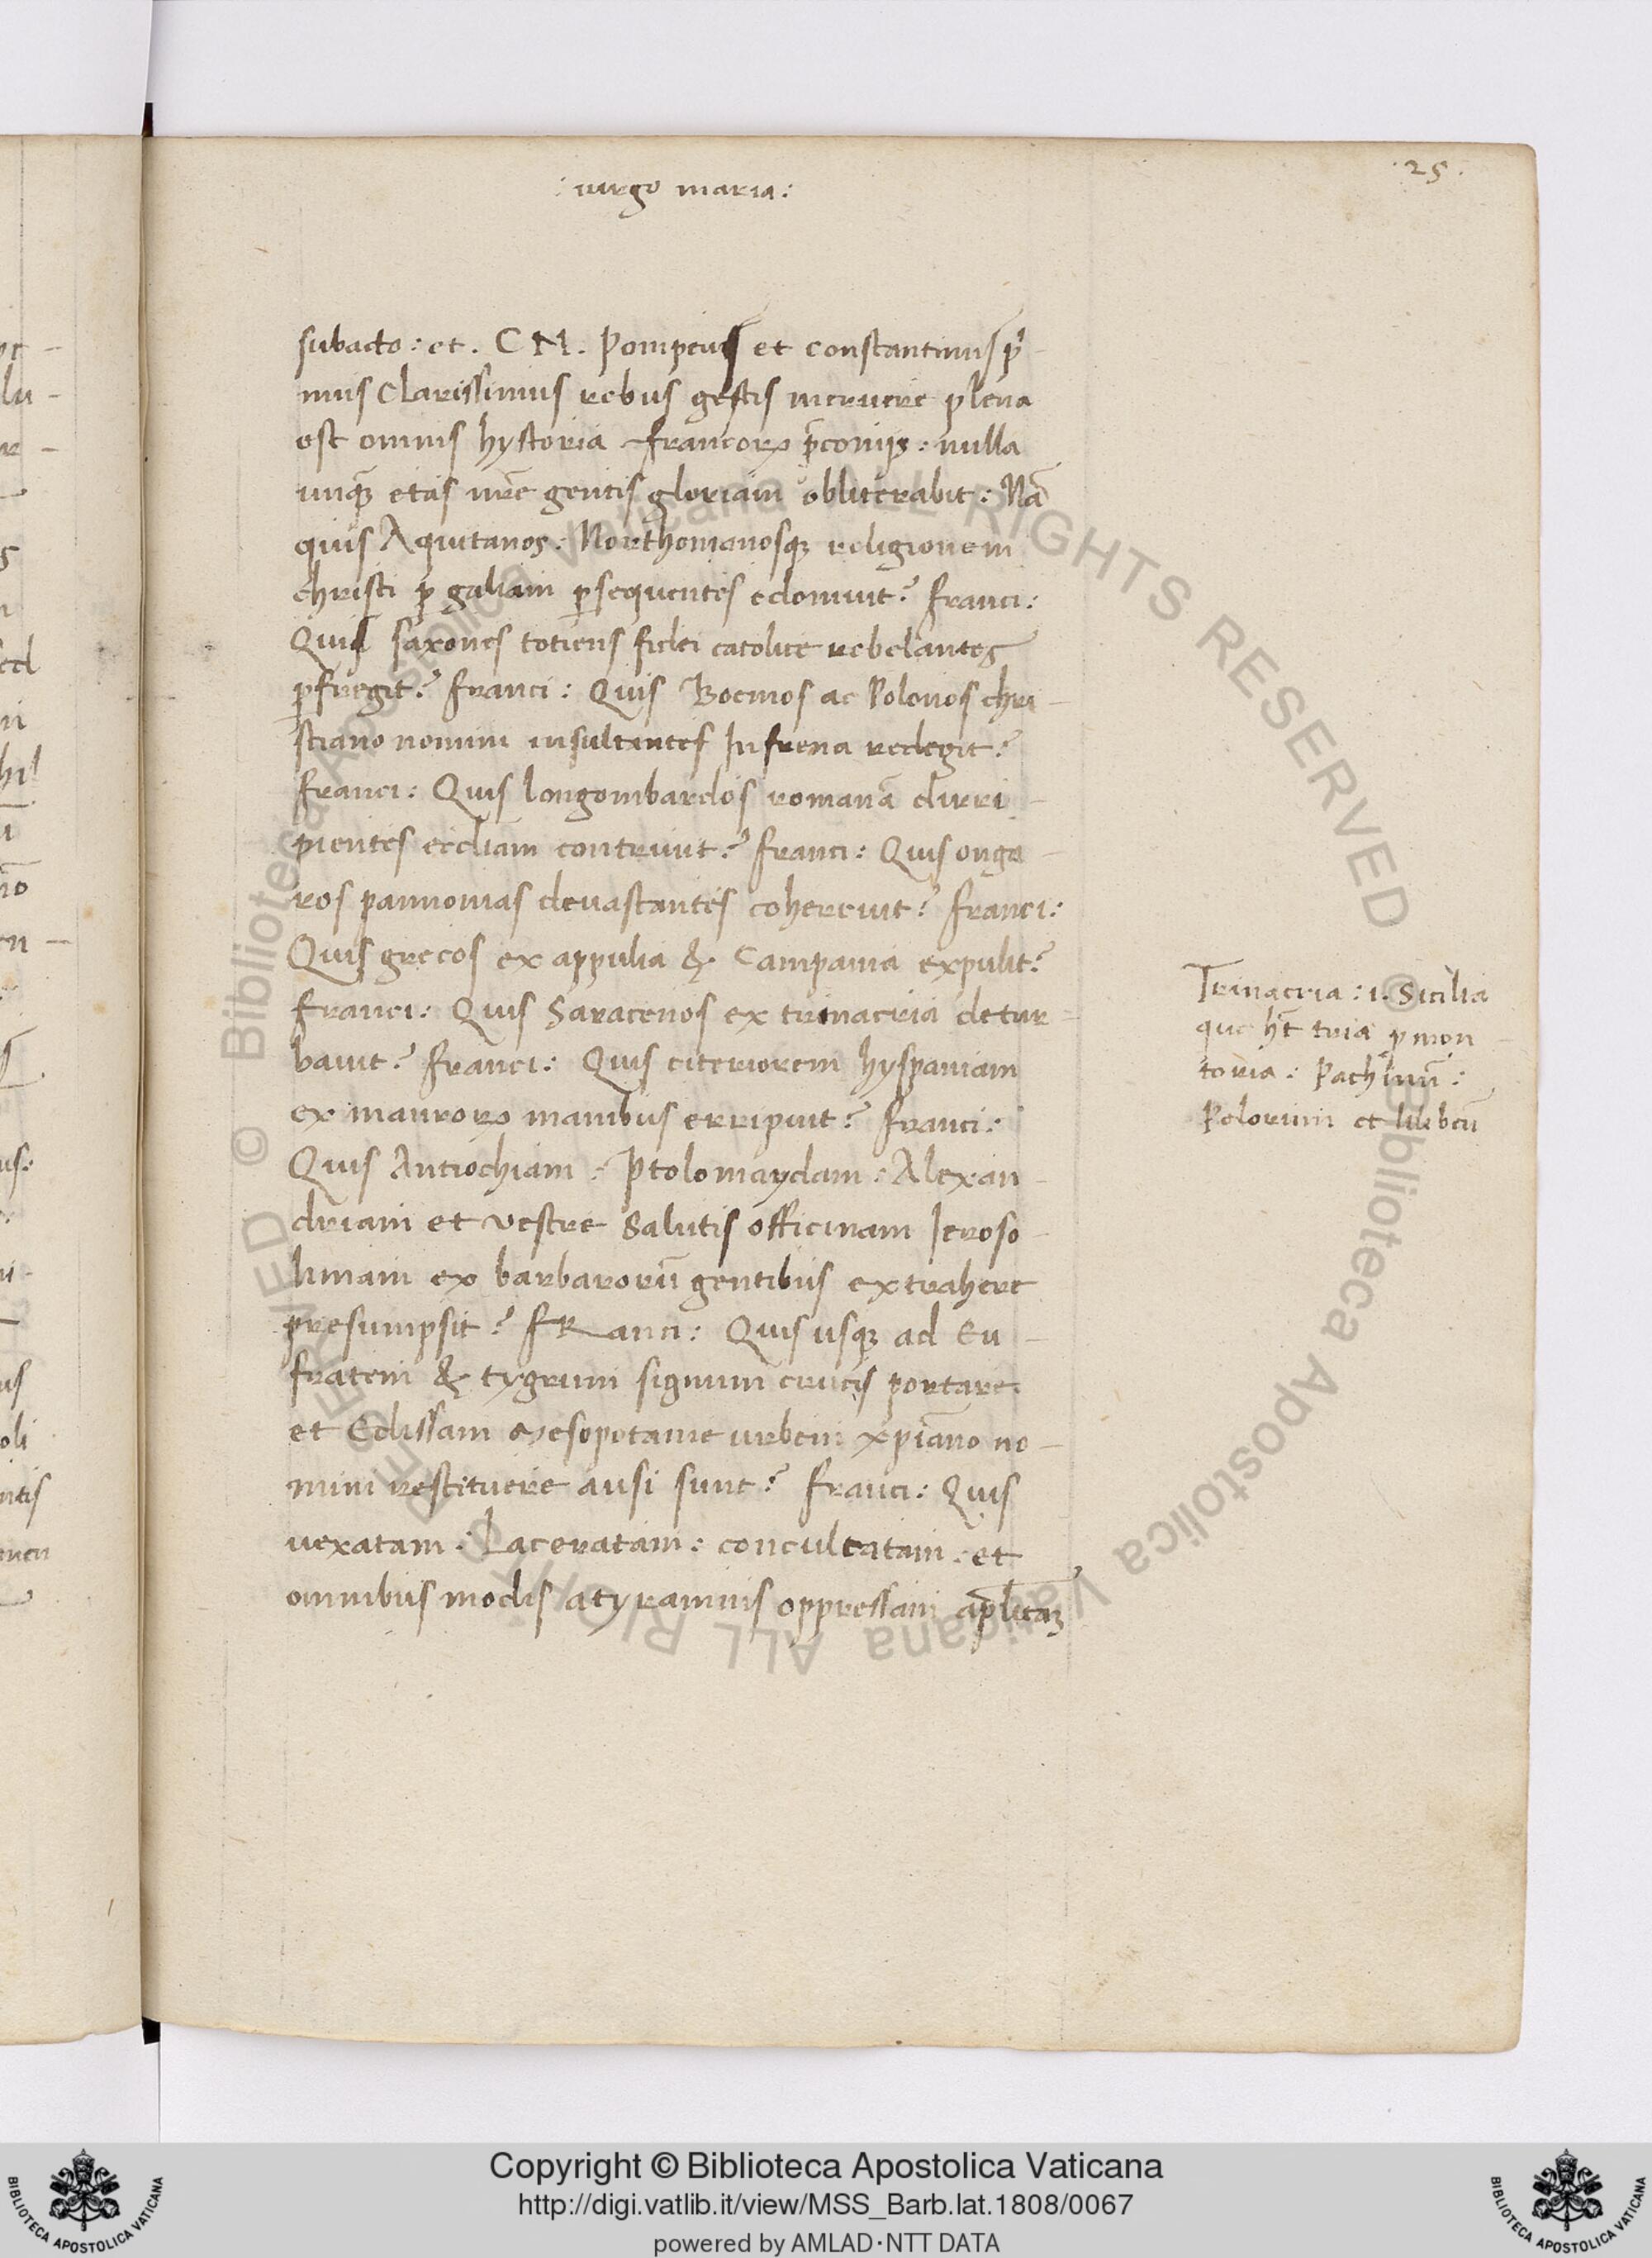 ·25·
: uirgo maria:
subacto: et. C M. Pompeius et constantinus p̄
mus Clarissimus rebus gestis meruere plena
est omnis hystoria francorꝝ p̄conijs: nulla
unqꝫ etas nr̄e gentis gloriam obliterabit: Nā
quis Aquitanos: Northomanosqꝫ religionem
christi ꝑ galiam ꝑsequentes edomuit? franci:
Quis saxones totiens fidei catolice rebelantes
ꝑfregit? franci: Quis Boemos ac Polonos chri-
stiano nomini insultantes In frena redegit?
franci: Quis longombardos romanā dirri-
pientes eccl̄iam contriuit? franci: Quis onga-
ros pannonias deuastantes cohercuit? franci:
Quis grecos ex appulia &. Campania expulit?
franci: Quis Saracenos ex trinacria detur-
bauit? franci: Quis citeriorem hyspaniam
ex maurorꝝ manibus erripuit? franci:
Quis Antiochiam: Ptolomaydam: Alexan-
driam et vestre Salutis officinam Ieroso-
limam ex barbarorū gentibus extrahere
presumpsit? fRanci: Quis usqꝫ ad Eu-
fratem & tygrim signum crucis portare
et Edissam Mesopotamie urbem xp̄iano no-
mini restituere ausi sunt? franci: Quis
uexatam: Laceratam: conculcatam: et
omnibus modis a tyrannis oppressam ap̄licaꝫ
Trinacria: i. Sicilia
que hēt tria ꝓmon-
toria: Pachinū:
Pelorum et lilibeū
Copyright © Biblioteca Apostolica Vaticana
http://digi.vatlib.it/view/MSS_Barb.lat.1808/0067
powered by AMLAD·NTT DATA
BIBLIOTECA APOSTOLICA VATICANA
BIBLIOTECA APOSTOLICA VATICANA
© Biblioteca Apostolica Vaticana ALL RIGHTS RESERVED
© Biblioteca Apostolica Vaticana ALL RIGHTS RESERVED